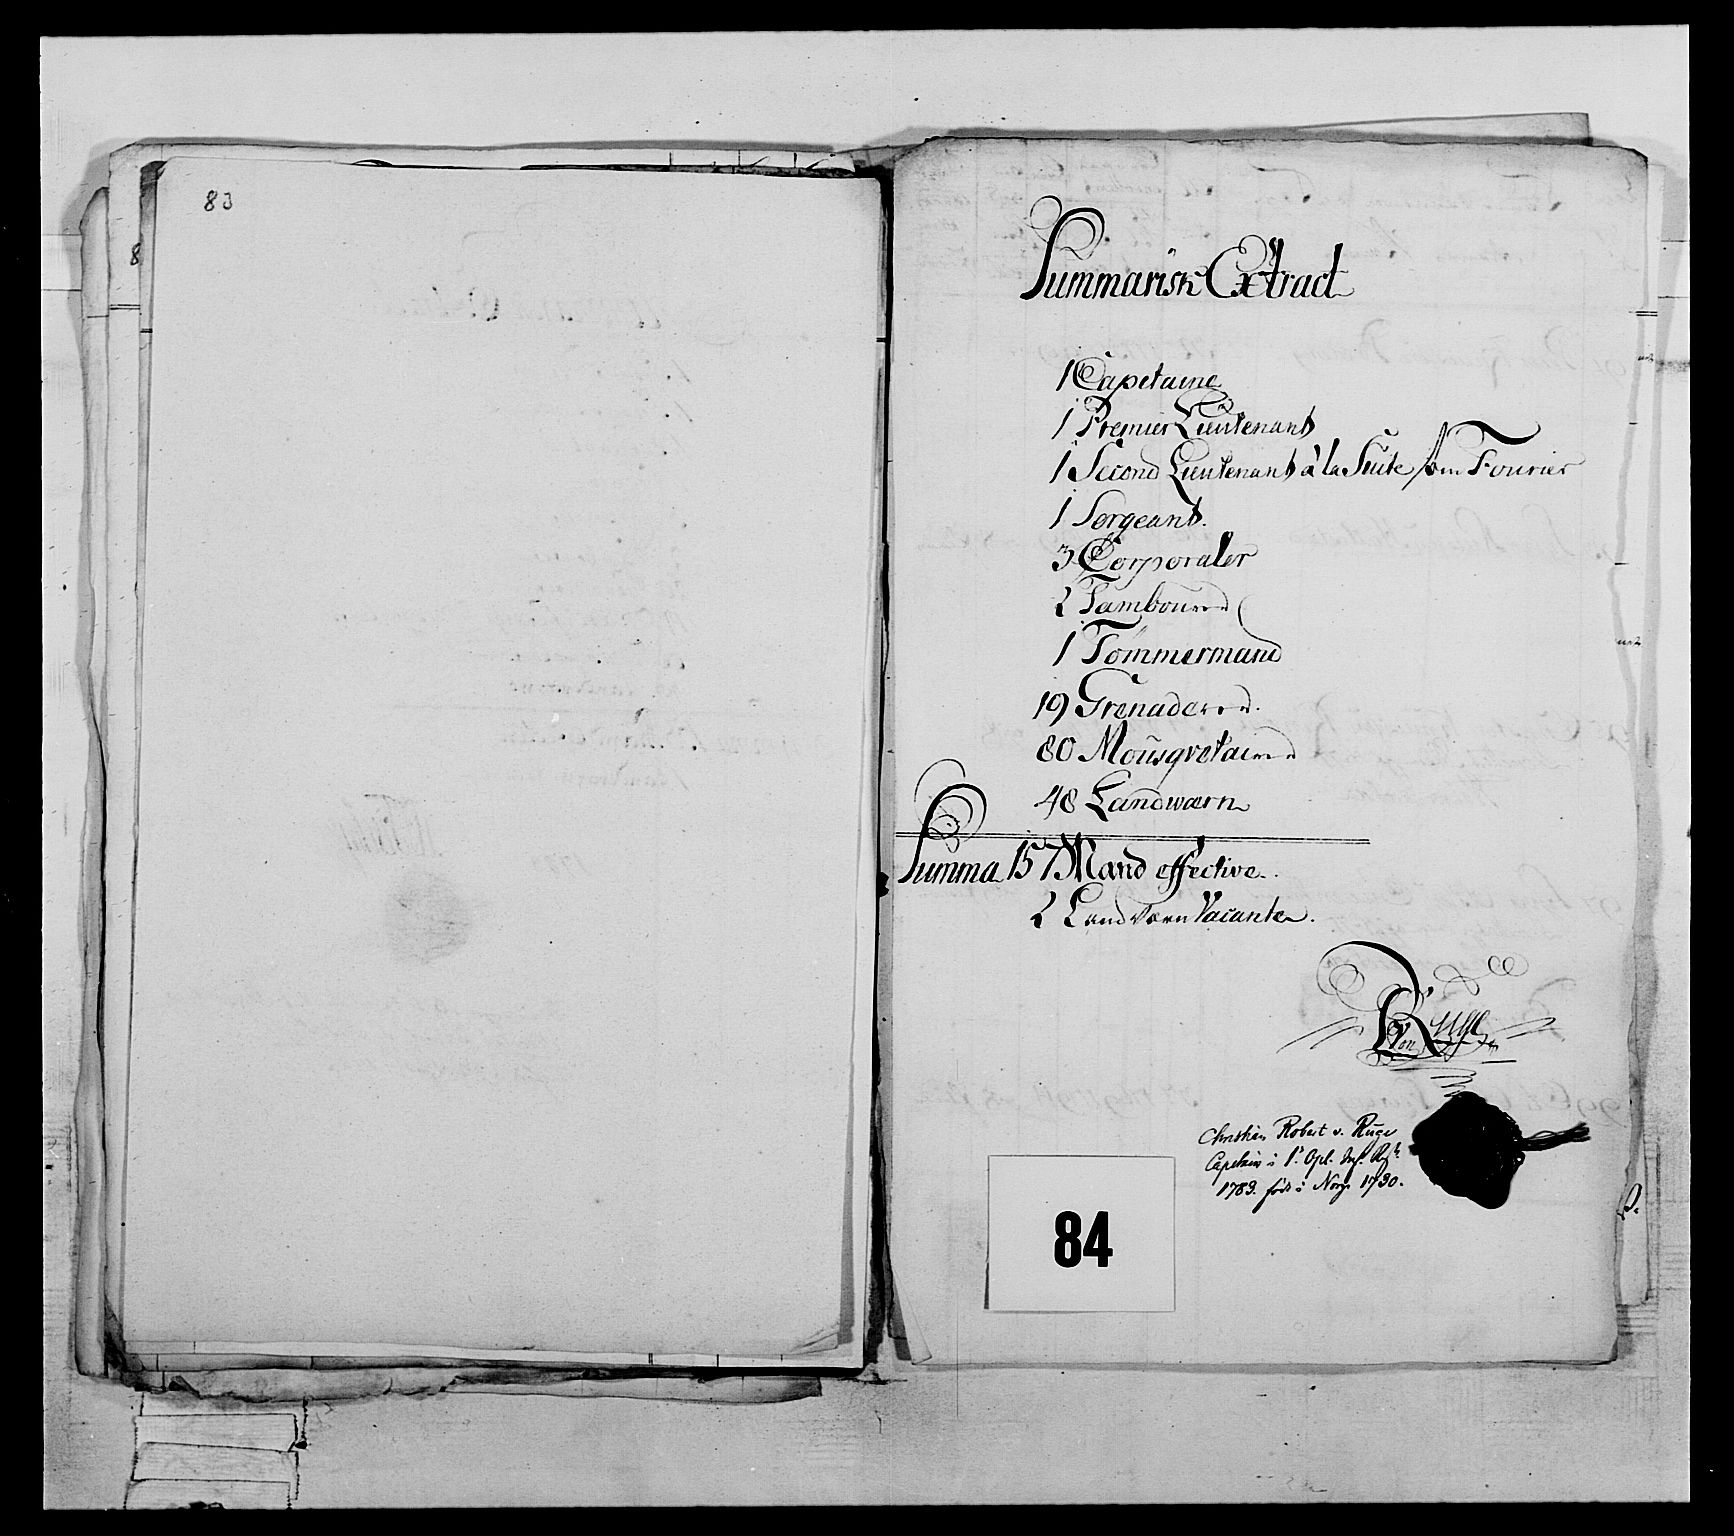 83
8
Summarisk Extract
1 Capetaine
1 Premier Lieutenant
1 Second Lieutenant à la Suite som Fourier
1 Sergeant.
3 Corporaler
2 Tambourer
1 Tømmermand
19 Grenaderer.
80 Mousqvetairer
48 Landwærn
Summa 157 Mand effective.
2 Landværn Vacante.
von Ruge
Christian Robert v. Ruge
Capetain i 1. Opl. Inf. Rgt.
1783. født i Norge 1730.
84